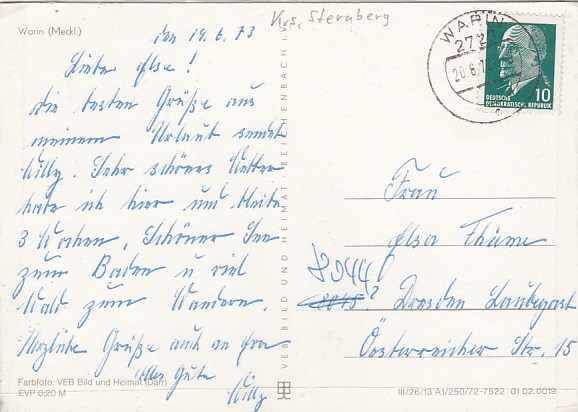 Warin (Meckl.)
Krs. Sternberg
den 19.6.73
Liebe Elsa!
die besten Grüße aus
meinem Urlaub sendet
Willy. Sehr schönes Wetter
habe ich hier und bleibe
3 Wochen. Schöner See
zum Baden u viel
Wald zum Wandern.
Herzliche Grüße auch an
Alles Gute
Willy
Farbfoto: VEB Bild und Heimat (Darr)
EVP 0,20 M
VEB BILD UND HEIMAT REICHENBACH I. V.
WARIN
272
20.6.7
10
DEUTSCHE
DEMOKRATISCHE REPUBLIK
Frau
Elsa Thüme
8044
8045 Dresden Laubegast
Österreicher Str. 15
III/26/13 A1/250/72-7522 01 02 0019